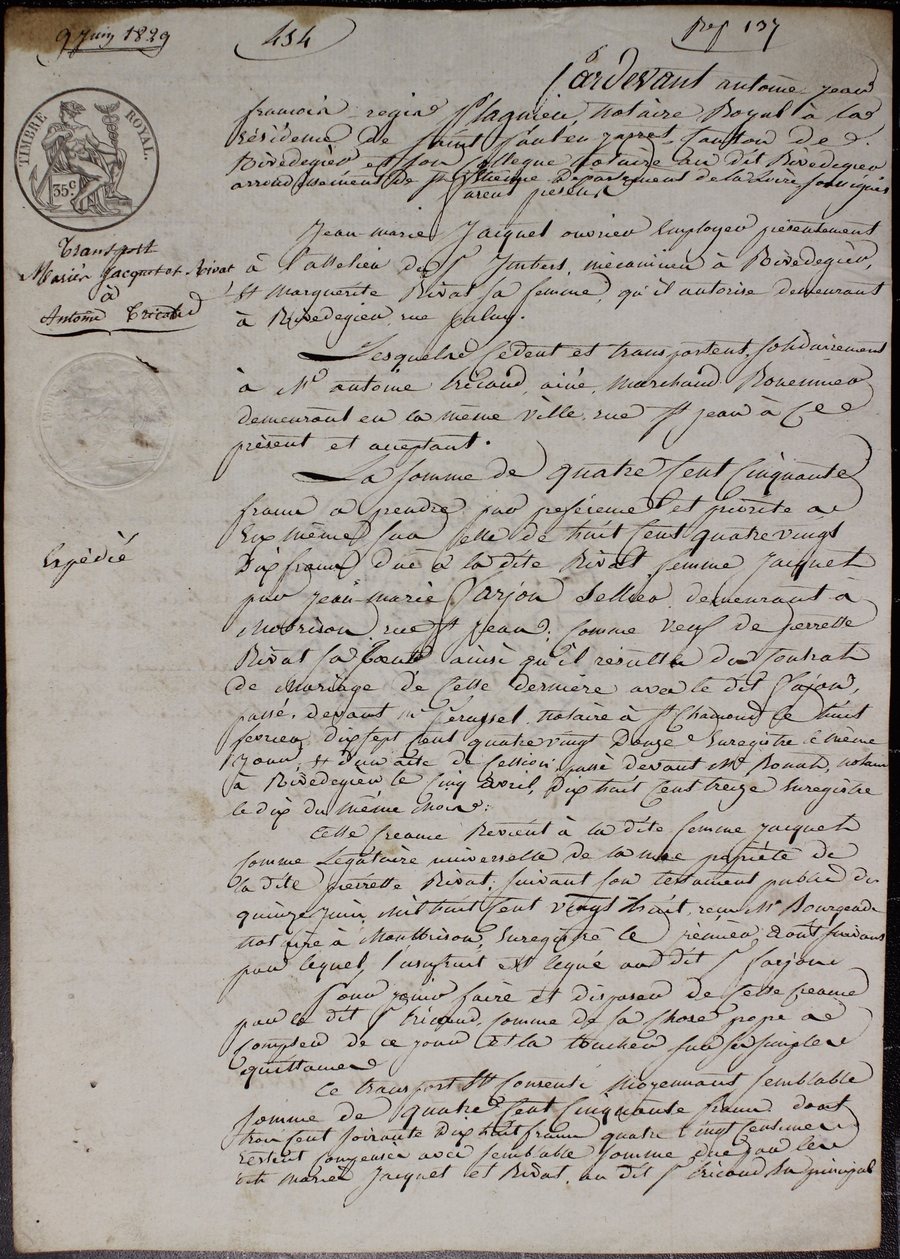 9 Juin 1829
454
Rep 137
TIMBRE ROYAL.
35c
Transport
Mariés Jacquet et Rivat
à
Antoine Tricaud
Expédié
Pardevant antoine jean
françois regis notaire Royal à la
résidence de Saint Canton de
Rivedegier et son Collegue notaire au dit Rivedegier
arrondissement de St Etienne Département de la Loire soussignés
furent présents
Jean-marie Jacquet ouvrier Employer présentement
à l'attelier du Sr Imbert, mécanicien à Rivedegier,
Et Marguerite Rivat sa femme, qu'il autorise demeurant
à Rivedegier, rue
Lesquels Cedent et transportent, solidairement
à Mr antoine tricaud, ainé, Marchand Rouennier
demeurant en la même ville, rue St jean à Ce
présent et acceptant.
La somme de quatre Cent Cinquante
francs à prendre par préférence et priorité à
Eux même sur Celle de huit Cent quatre vingt
Dix francs duë à la dite Rivat femme Jacquet
par Jean-marie Farjon Sellier demeurant à
Montbrison, rue St Jean, comme veuf de pierrette
Rivat sa ainsi qu'il résulte du Contrat
de Mariage de Cette dernière avec le dit Farjon,
passé, devant Me notaire à St Chamond le huit
février dix sept Cent quatre vingt Douze Enregistré le même
jour, Et d'un acte de Cession passé devant Me notaire
à Rivedegier le Cinq avril, Dix huit Cent treize Enregistré
le dix du même mois.
Cette créance Revient à la dite femme Jacquet
comme Légataire universelle de la nue propriété de
la dite pierrette Rivat, suivant son testament public du
quinze juin mil huit Cent vingt huit, reçu Me
notaire à Montbrison, Enregistré le premier août suivant
par lequel, l'usufruit est legué au dit Sr Farjon
Pour jouir faire et disposer de Cette créance
par le dit Sr tricaud, comme de sa Chose propre à
Compter de ce jour Et la toucher sur sa simple
quittance
Ce transport Est Consenti Moyennant semblable
somme de quatre Cent Cinquante francs dont
trois Cent soixante Dix huit francs quatre vingt Centimes
restent compensés avec semblable somme duë par les
dits mariés Jacquet et Rivat, au dit Sr tricaud En principal